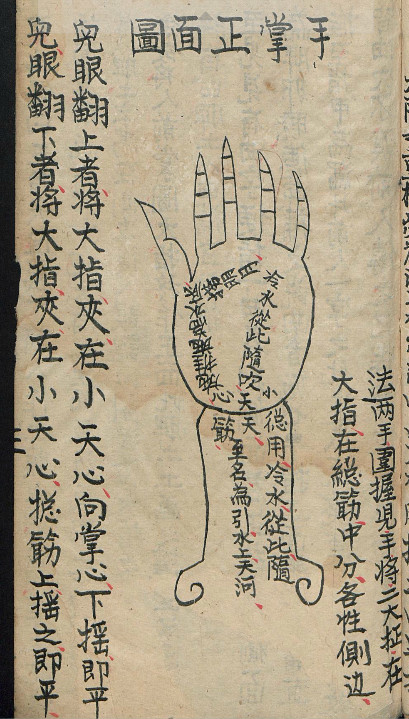 手掌正面圖
法两手圍握児手将二大指在
大指在総筋中分各性側边
冷水從此隨吹
小天心
從用冷水從此隨
天
至名為引水上天河
筋
児眼翻上者将大指夾在小天心向掌心下揺即平
児眼翻下者将大指夾在小天心揔筋上揺之即平